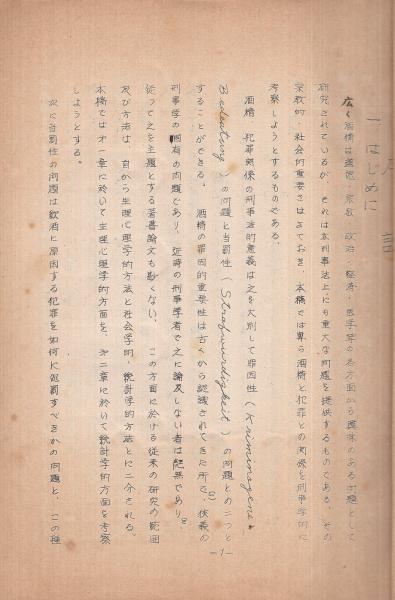 序言
一 はじめに
広く酒精は道徳・宗教・政治・経済・医学等の各方面から興味のある問題として
研究されているが、それは亦刑事法上にも重大な問題を提供するものである。その
宗教的・社会的重要さはさておき、本稿では専ら酒精と犯罪との関係を刑事学的に
考察しようとするものである。
酒精・犯罪関係の刑事法的意義は之を大別して罪因性(Kriminogene
Bedeutung)の問題と当罰性(Strafwürdigkeit)の問題との二つと
することができる。 酒精の罪因的重要性は古くから認識されてきた所で、狭義の
刑事学の固有の問題であり、近時の刑事学者で之に論及しない者は皆無であり、
従つて之を主題とする著書論文も尠くない。 この方面に於ける従来の研究の範囲
及び方法は、自から生理心理学的方法と社会学的・統計学的方法とに二分される。
本稿では第一章に於いて生理心理学的方面を、第二章に於いて統計学的方面を考察
しようとする。
次に当罰性の問題は飲酒に原因する犯罪を如何に処罰すべきかの問題と、この種
-1-